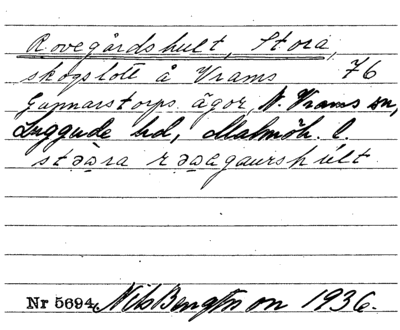 Rovegårdshult, Stora,
skogslott å Vrams 76
Gunnarstorps ägor, N. Vrams sn,
Luggude hd, Malmöh. l.
stǝära rǝagaurshúlt
Nr 5694. Nils Bengtsson 1936.